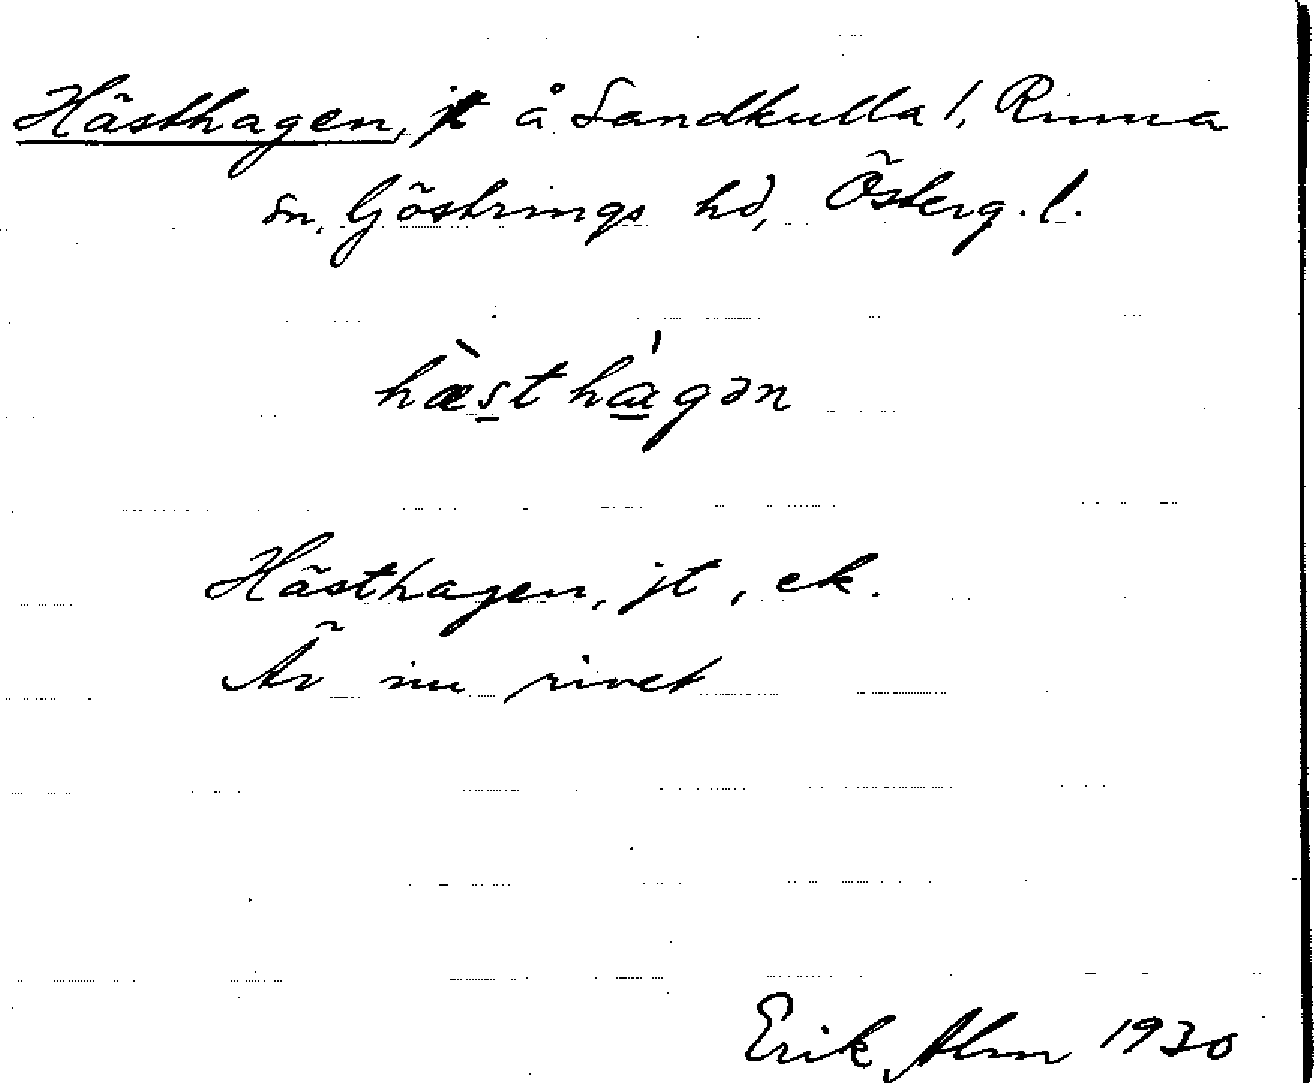 Hästhagen, jt å Sandkulla 1, Rinna
sn, Göstrings hd, Österg. l.
hæ̀sthágən
Hästhagen, jt, ek.
Är nu rivet
Erik Alm 1930